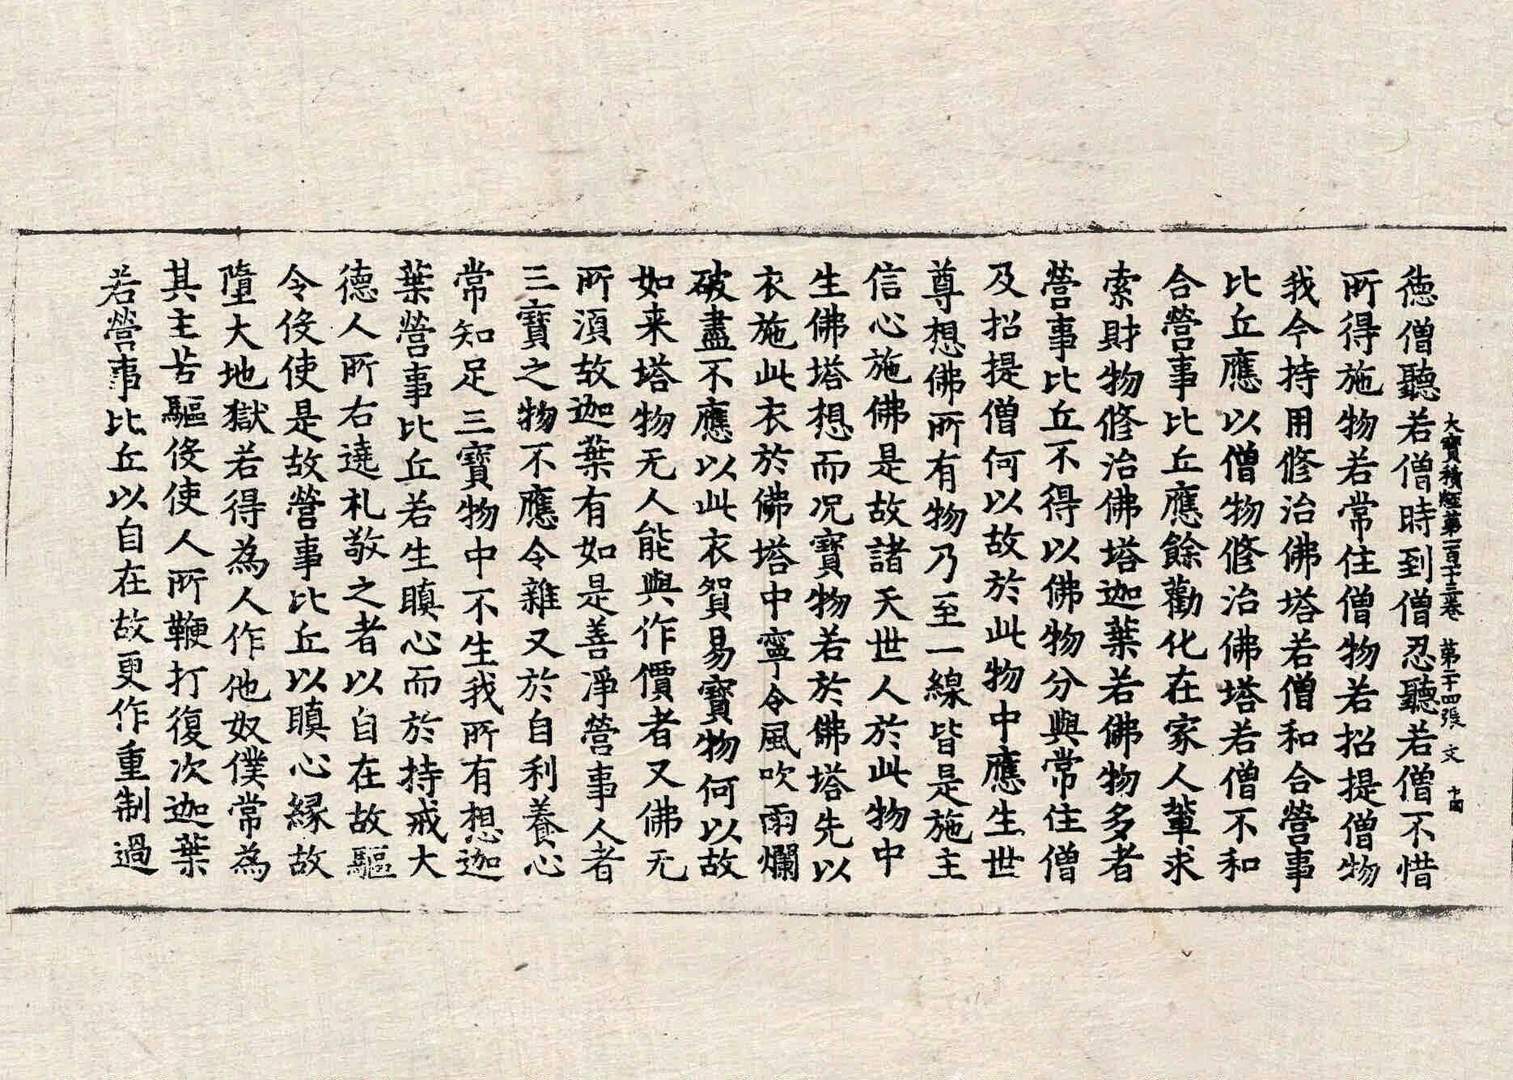 大寶積經第一百十三卷 第二十四張 文
德僧聽若僧時到僧忍聽若僧不惜
所得施物若常住僧物若招提僧物
我今持用修治佛塔若僧和合營事
比丘應以僧物修治佛塔若僧不和
合營事比丘應餘勸化在家人輩求
索財物修治佛塔迦葉若佛物多者
營事比丘不得以佛物分與常住僧
及招提僧何以故於此物中應生世
尊想佛所有物乃至一線皆是施主
信心施佛是故諸天世人於此物中
生佛塔想而况寶物若於佛塔先以
衣施此衣於佛塔中寧令風吹雨爛
破盡不應以此衣貿易寶物何以故
如来塔物无人能與作價者又佛无
所湏故迦葉有如是善淨營事人者
三寶之物不應令雜又於自利養心
常知足三寶物中不生我所有想迦
葉營事比丘若生瞋心而於持戒大
德人所右遶礼敬之者以自在故驅
令伇使是故營事比丘以瞋心縁故
墮大地獄若得為人作他奴僕常為
其主苦驅伇使人所鞭打復次迦葉
若營事比丘以自在故更作重制過